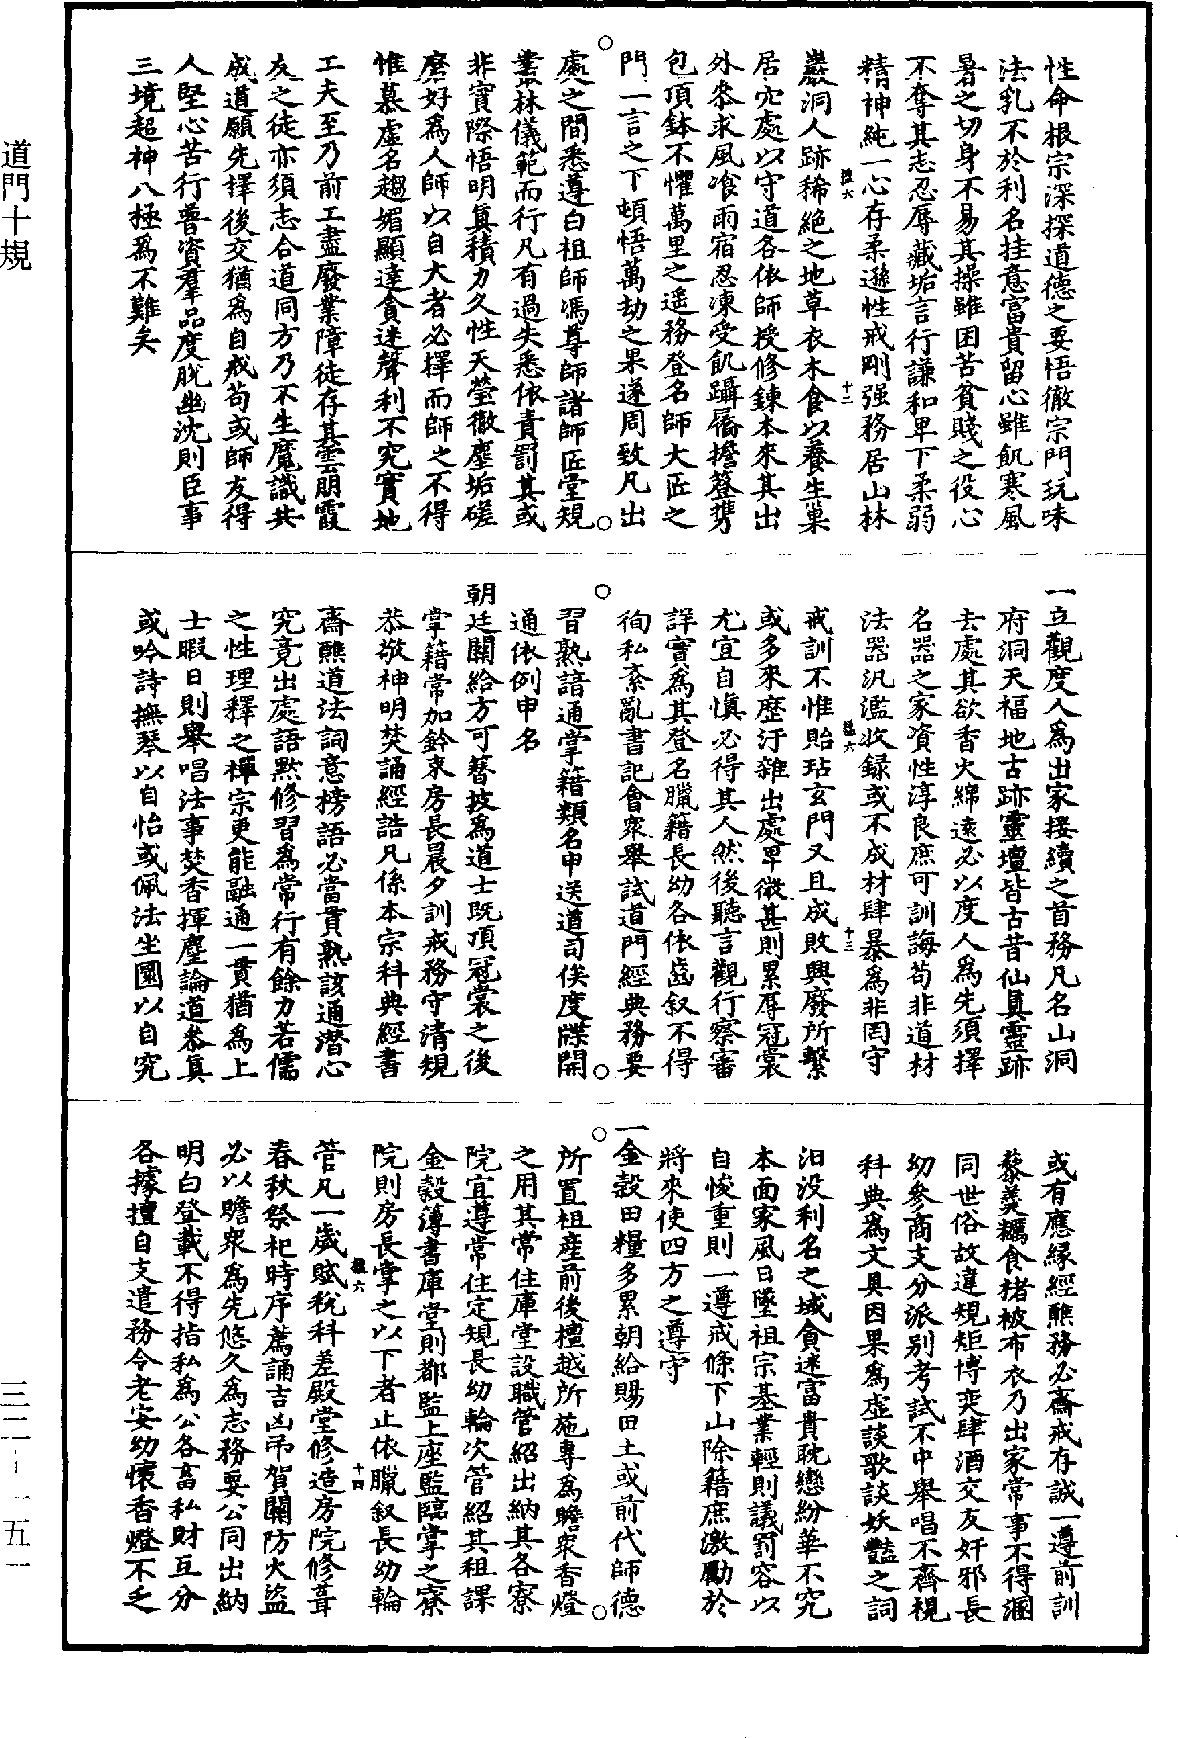 道門十規
性命根宗深探道德之要悟徹宗門玩味
法乳不於利名挂意富貴留心雖飢寒風
暑之切身不易其操雖困苦貧賤之役心
不奪其志忍辱藏垢言行謙和卑下柔弱
精神純一心存柔遜性戒剛强務居山林
十二
巖洞人跡稀絶之地草衣木食以養生巢
居穴處以守道各依師授修鍊本來其出
外叅求風飡雨宿忍凍受飢躡屩擔簦携
包頂鉢不懼萬里之遥務登名師大匠之
門一言之下頓悟萬劫之果遂周致凡出
處之間悉遵白祖師馮尊師諸師匠堂規
叢林儀範而行凡有過失悉依責罰其或
非實際悟明真積力久性天瑩徹塵垢磋
磨好爲人師以自大者必擇而師之不得
惟慕虛名趨媚顯達貪迷聲利不究實地
工夫至乃前工盡廢業障徒存其雲朋霞
友之徒亦須志合道同方乃不生魔識共
成道願先擇後交猶爲自戒苟或師友得
人堅心苦行普資羣品度脫幽沈則臣事
三境超神八極爲不難矣
一立觀度人爲出家接續之首務凡名山洞
府洞天福地古跡靈壇皆古昔仙真靈跡
去處其欲香火綿遠必以度人爲先須擇
名器之家資性淳良庶可訓誨苟非道材
法器汎濫收録或不成材肆暴爲非罔守
十三
戒訓不惟貽玷玄門又且成敗興廢所繫
或多來歷汙雜出處卑微甚則累辱冠裳
尤宜自慎必得其人然後聽言觀行察審
詳實爲其登名臘籍長幼各依齒叙不得
徇私紊亂書記會衆舉試道門經典務要
習熟諳通掌籍類名申送道司俟度牒開
通依例申名
朝廷關給方可簪披爲道士既頂冠裳之後
掌籍常加鈐束房長晨夕訓戒務守清規
恭敬神明焚誦經誥凡係本宗科典經書
齋醮道法詞意榜語必當貫熟該通潛心
究竟出處語默修習爲常行有餘力若儒
之性理釋之禪宗更能融通一貫猶爲上
士暇日則舉唱法事焚香揮塵論道叅真
或吟詩撫琴以自怡或佩法坐圜以自究
或有應縁經醮務必齋戒存誠一遵前訓
藜羹糲食楮被布衣乃出家常事不得溷
同世俗故違規矩博奕肆酒交友奸邪長
幼參商支分派别考試不中舉唱不齊視
科典爲文具因果爲虛談歌談妖豔之詞
汨没利名之域貪迷富貴耽戀紛華不究
本面家風日墜祖宗基業輕則議罰容以
自悛重則一遵戒條下山除籍庶激勵於
將來使四方之遵守
一金穀田糧多累朝給賜田土或前代師德
所置祖産前後檀越所施專爲贍衆香燈
之用其常住庫堂設職管紹出納其各寮
院宜遵常住定規長幼輪次管紹其租課
金穀簿書庫堂則都監上座監臨掌之寮
院則房長掌之以下者止依臘叙長幼輪
十四
管凡一歲賦稅科差殿堂修造房院修葺
春秋祭祀時序薦誦吉凶弔賀關防火盜
必以贍衆爲先悠久爲志務要公同出納
明白登載不得指私爲公各畜私財互分
各據擅自支遣務令老安幼懷香燈不乏
三二-一五一